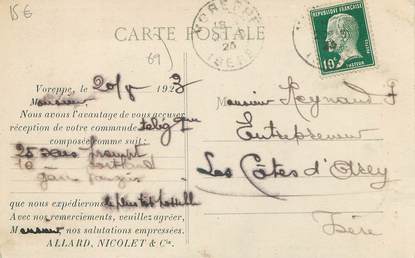 15€
CARTE POSTALE
69)
VOREPPE
ISÈRE
RÉPUBLIQUE FRANÇAISE
POSTES
10c
PASTEUR
Voreppe, le 20/8 1923
Monsieur
Nous avons l'avantage de vous accuser
réception de votre commande
composée comme suit:
25 sacs prompt
que nous expédierons le plus tôt possible
Avec nos remerciements, veuillez agréer,
Monsieur nos salutations empressées.
ALLARD, NICOLET & Cie.
Monsieur Reynaud F
Entrepreneur
Les Côtes d'Arey
Isère